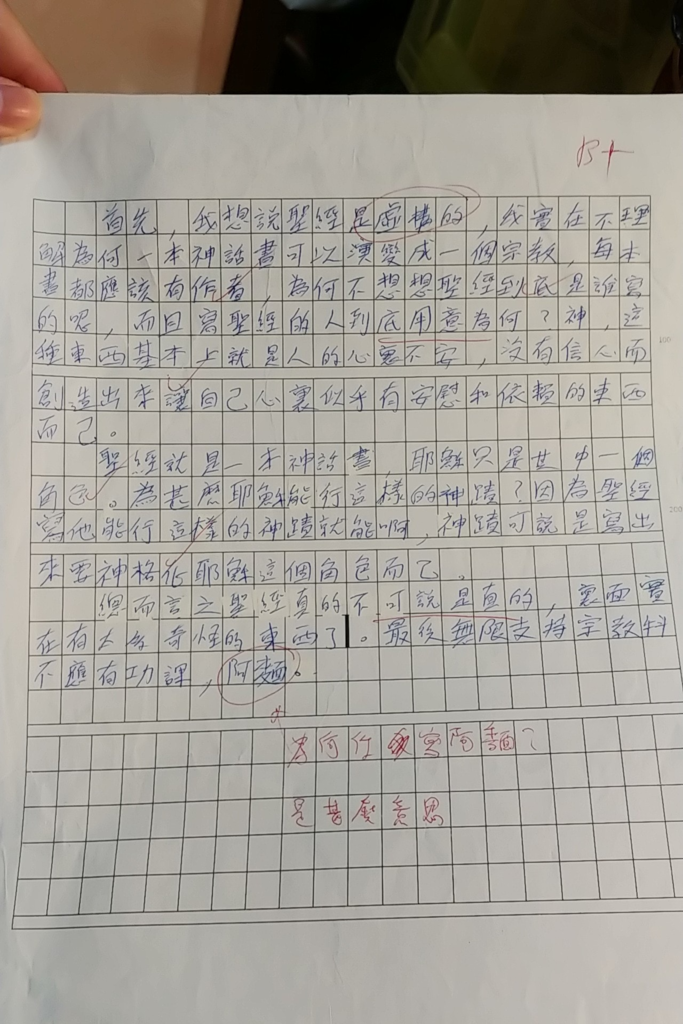 B+
首先，我想說聖經是虛構的，我實在不理
解為何一本神話書可以演變成一個宗教，每本
書都應該有作者，為何不想想聖經到底是誰寫
的呢，而且寫聖經的人到底用意為何？神，這
種東西基本上就是人的心裏不安，沒有信心而
100
創造出來讓自己心裏似乎有安慰和依賴的東西
而已。
聖經就是一本神話書，耶穌只是其中一個
角色。為甚麼耶穌能行這樣的神蹟？因為聖經
寫他能行這樣的神蹟就能啊，神蹟可說是寫出
200
來要神格化耶穌這個角色而已。
總而言之聖經真的不可說是真的，裏面實
在有太多奇怪的東西了。最後無限支持宗教科
不應有功課，阿麵。
為何你會寫阿麵？
是甚麼意思